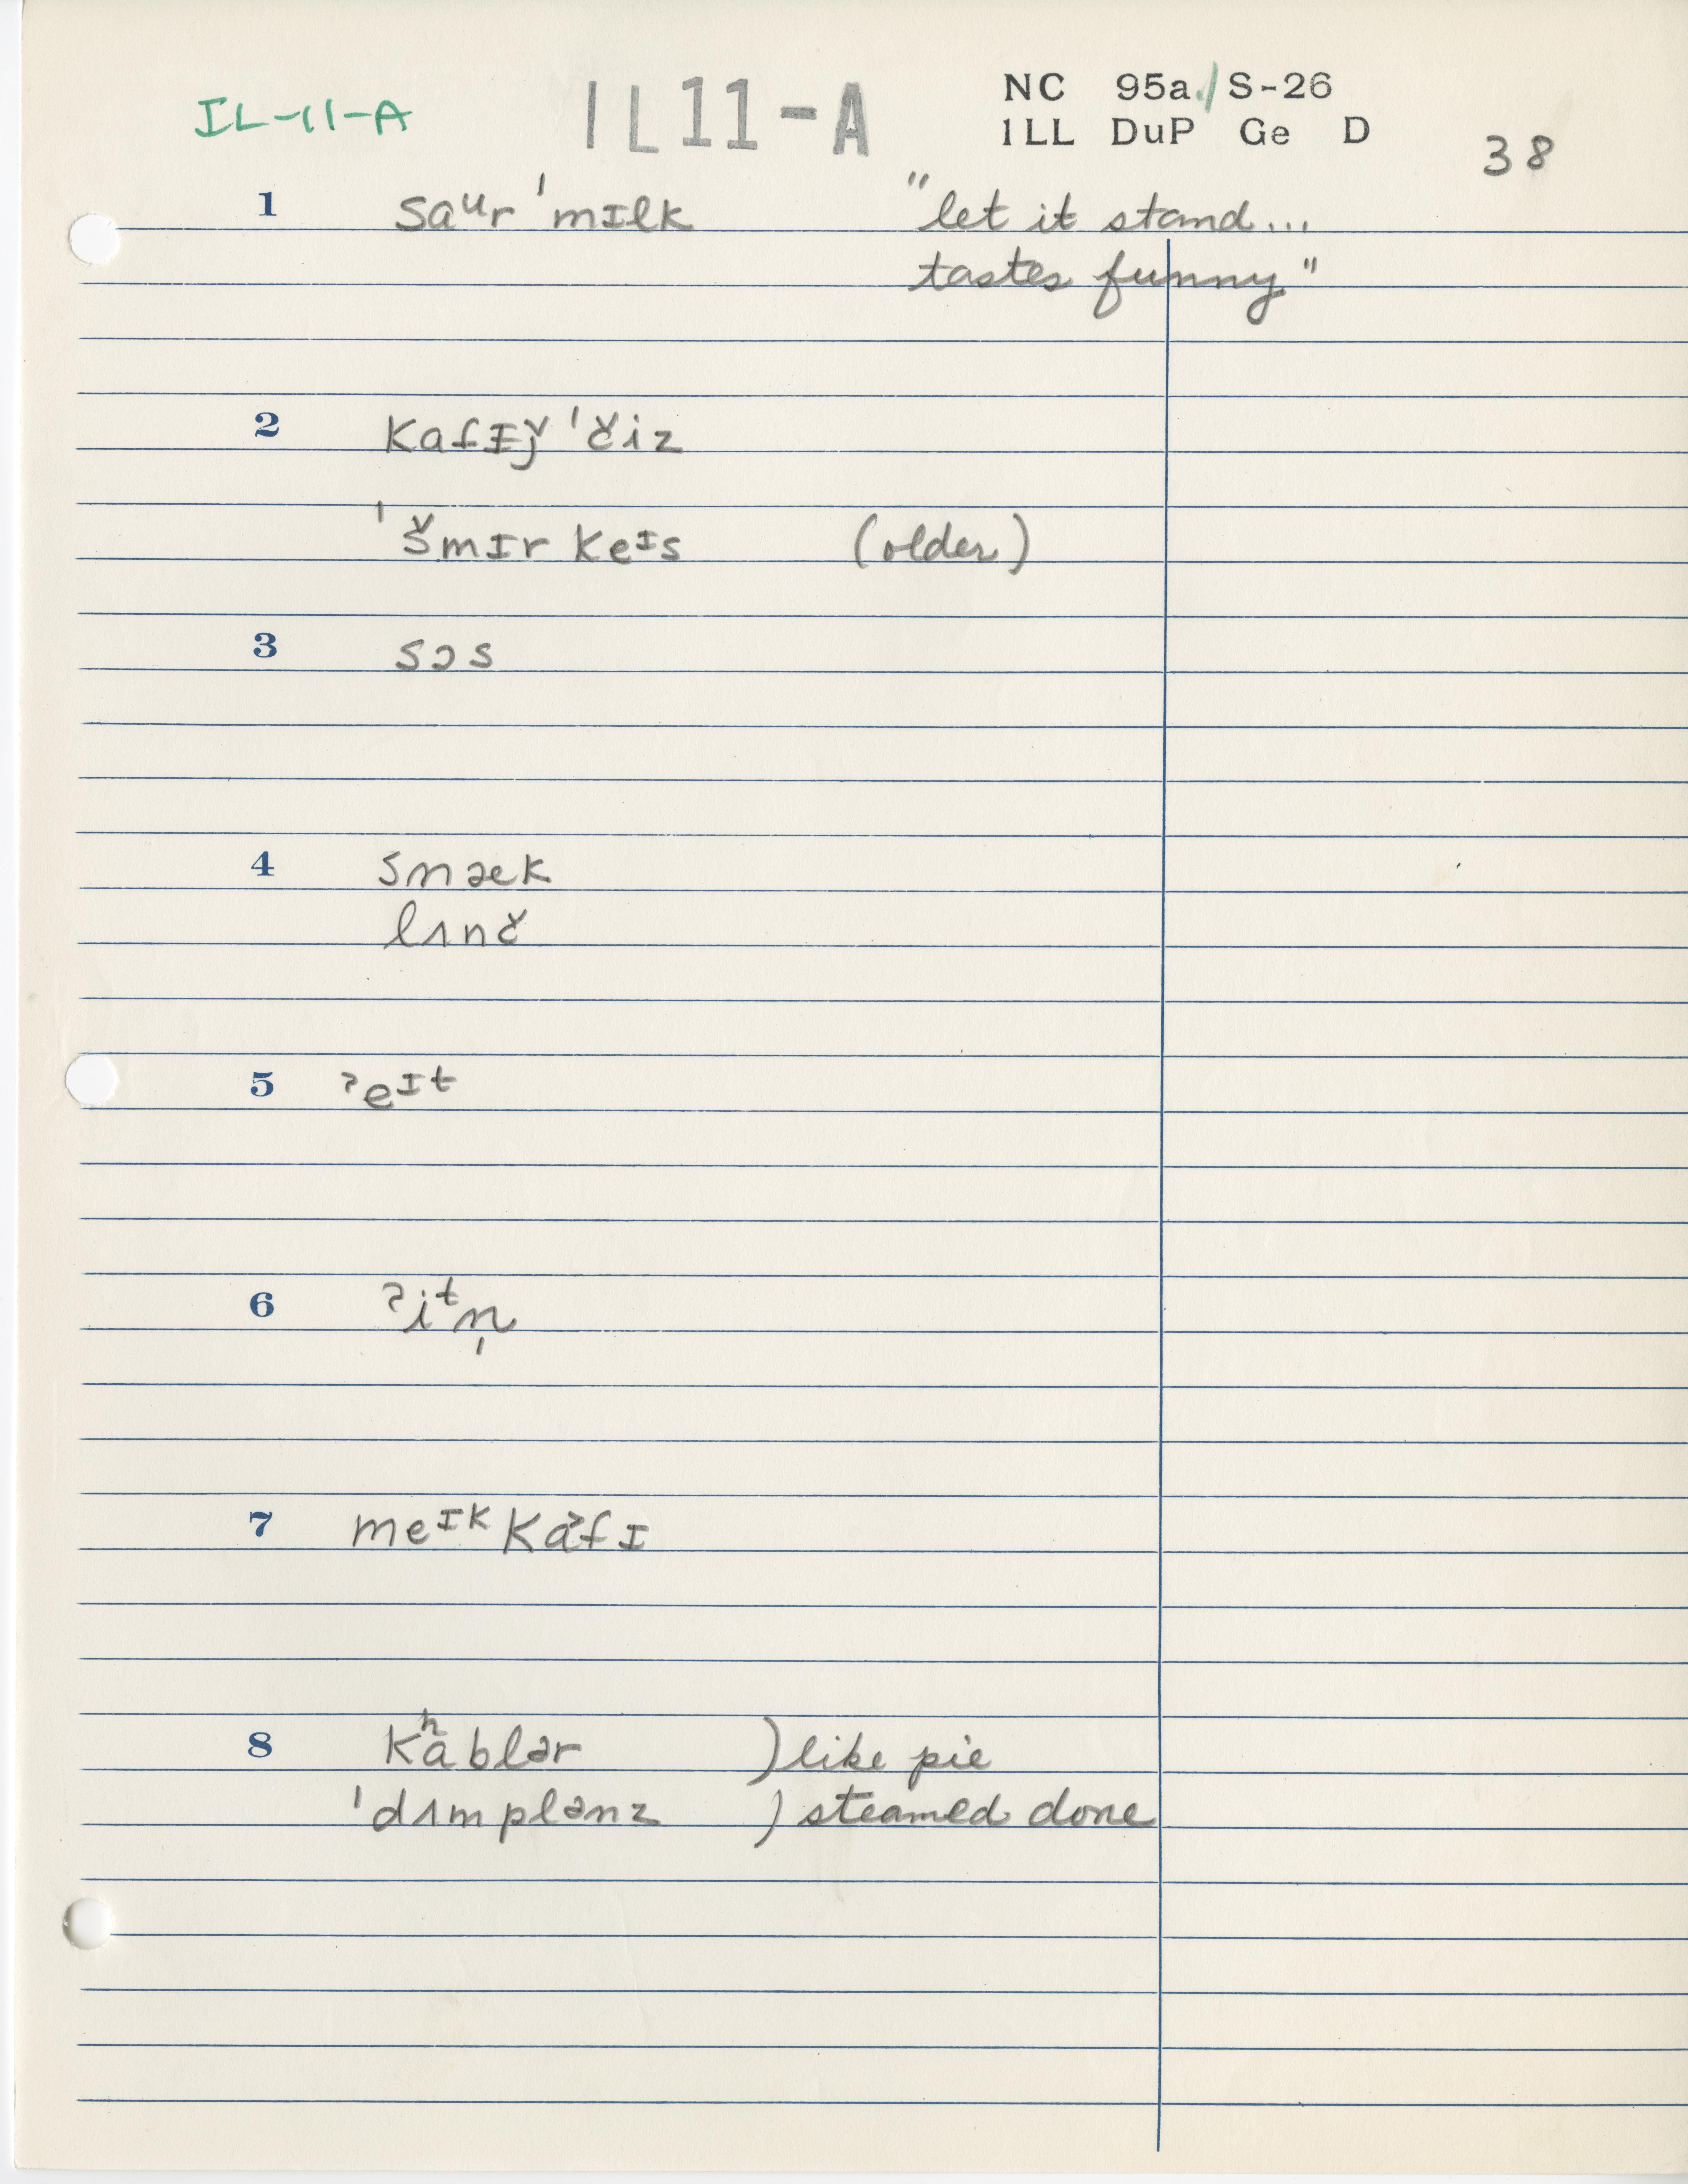 IL-11-A IL11-A NC 95a./S-26
ILL DuP Ge D 38
1 saᵘr ˈmɪlk "let it stand...
tastes funny"
2 kafɪǰ ˈčiz
ˈšmɪr keᶦs (older)
3 sɔs
4 snæk
lʌnč
5 ˀeᶦᵗ
6 ˀiᵗn̩
7 meᶦᵏ ka˃fɪ
8 kʰablər ) like pie
ˈdʌmplənz ) steamed done